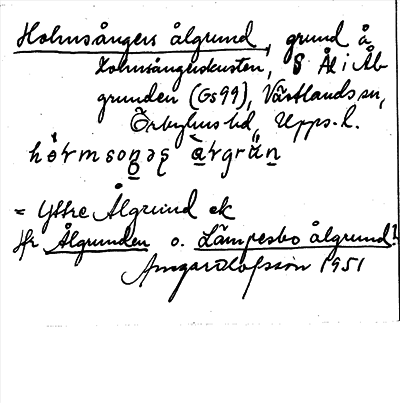 Holmsångers ålgrund, grund å
Holmsångerskusten, S Ål i Ål-
grunden (Gs99), Västlands sn,
Örbyhus hd, Upps. l.
= Yttre Ålgrund ek
Jfr Ålgrunden o. Lämpesbo ålgrund?
Olofsson 1951